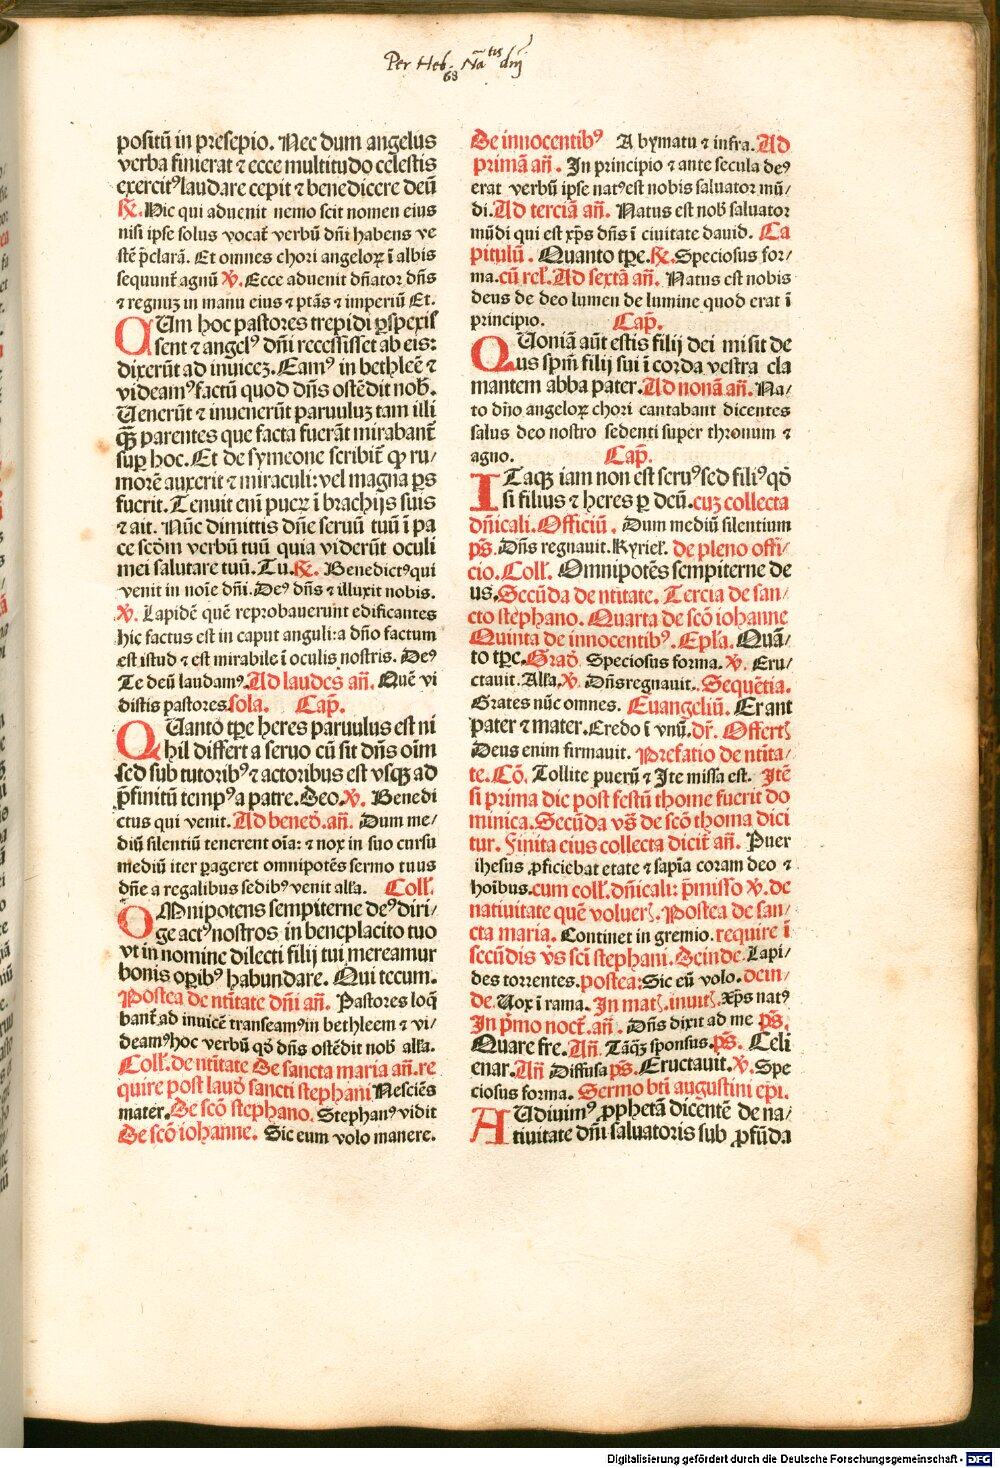 Per Heb. Na^tis dnj
68
positū in presepio. Nec dum angelus
verba finierat ⁊ ecce multitudo celestis
exercitꝰ laudare cepit ⁊ benedicere deū
R̃. Hic qui aduenit nemo scit nomen eius
nisi ipse solus vocat̄ verbū dñi habens ve
stē p̄clarā. Et omnes chori angeloꝝ ī albis
sequunt̄ agnū V̄. Ecce aduenit dñator dñs
⁊ regnuꝫ in manu eius ⁊ ptãs ⁊ imperiū Et.
QUm hoc pastores trepidi ꝑspexis
sent ⁊ angelꝰ dñi recessisset ab eis:
dixerūt ad inuiceꝫ. Eamꝰ in bethleē ⁊
videamꝰ factū quod dñs ostēdit nob̄.
Uenerūt ⁊ inuenerūt paruuluꝫ tam illi
qꝫ̄ parentes que facta fuerāt mirabant̄
suꝑ hoc. Et de symeone scribit̄ ꝙ ru/
morē auxerit ⁊ miraculi: vel magna ꝑs
fuerit. Tenuit eni puerꝫ ī brachijs suis
⁊ ait. Nūc dimittis dñe seruū tuū ī pa
ce scd̄m verbū tuū quia viderūt oculi
mei salutare tuū. Tu. R̃. Benedictꝰ qui
venit in noīe dñi. Deꝰ dñs ⁊ illuxit nobis.
V̄. Lapidē quē reprobauerunt edificantes
hic factus est in caput anguli: a dño factum
est istud ⁊ est mirabile ī oculis nostris. Deꝰ
Te deū laudamꝰ. Ad laudes añ. Quē vi
distis pastores. sola. Cap̄.
QUanto tp̄e heres paruulus est ni
hil differt a seruo cū sit dñs oīm
sed sub tutoribꝰ ⁊ actoribus est vsqꝫ ad
p̄finitū tempꝰ a patre. Deo. V̄. Benedi
ctus qui venit. Ad bened̄. añ. Dum me/
diū silentiū tenerent oīa: ⁊ nox in suo cursu
mediū iter ꝑageret omnipotēs sermo tuus
dñe a regalibus sedibꝰ venit alla. Coll̄.
OMnipotens sempiterne deꝰ diri/
ge actꝰ nostros in beneplacito tuo
vt in nomine dilecti filij tui mereamur
bonis oꝑibꝰ habundare. Qui tecum.
Postea de ntitate dñi añ. Pastores loq̄
bant̄ ad inuicē transeamꝰ in bethleem ⁊ vi/
deamꝰ hoc verbū qd̄ dñs ostēdit nob̄ alla.
Coll̄. de ntitate De sancta maria añ. re
quire post laud̄ sancti stephani Nesciēs
mater. De scō stephano. Stephanꝰ vidit
De scō iohanne. Sic eum volo manere.
De innocentibꝰ A bymatu ⁊ infra. Ad
primā añ. In principio ⁊ ante secula deꝰ
erat verbū ipse natꝰ est nobis saluator mū/
di. Ad terciā añ. Natus est nob̄ saluator
mūdi qui est xp̄s dñs ī ciuitate dauid. Ca
pitulū. Quanto tp̄e. R̃. Speciosus for/
ma. cū rel̄. Ad sextā añ. Natus est nobis
deus de deo lumen de lumine quod erat ī
principio. Cap̄.
QUoniā aūt estis filij dei misit de
us spm̄ filij sui ī corda vestra cla
mantem abba pater. Ad nonā añ. Na/
to dño angeloꝝ chori cantabant dicentes
salus deo nostro sedenti super thronum ⁊
agno. Cap̄.
ITaqꝫ iam non est seruꝰ sed filiꝰ qd̄
si filius ⁊ heres ꝑ deū. cuꝫ collecta
dñicali. Officiū. Dum mediū silentium
ps̄. Dñs regnauit. Kyriel̄. de pleno offi/
cio. Coll̄. Omnipotēs sempiterne de
us. Secūda de ntitate. Tercia de san/
cto stephano. Quarta de scō iohanne
Quinta de innocentibꝰ. Epl̄a. Quā/
to tp̄e. Grad̄ Speciosus forma. V̄. Eru/
ctauit. Alla. V̄. Dñs regnauit. Sequētia.
Grates nūc omnes. Euangeliū. Erant
pater ⁊ mater. Credo ī vnū. dr̄. Offert̄
Deus enim firmauit. Prefatio de ntita/
te. Cō. Tollite puerū ⁊ Ite missa est. Itē
si prima die post festū thome fuerit do
minica. Secūda vs̄ de scō thoma dici
tur. Finita eius collecta dicit̄ añ. Puer
ihesus ꝓficiebat etate ⁊ sapīa coram deo ⁊
hoībus. cum coll̄. dñicali: p̄misso V̄. de
natiuitate quē voluer̄. Postea de san/
cta maria. Continet in gremio. require ī
secūdis vs̄ sci stephani. Deinde. Lapi/
des torrentes. postea: Sic eū volo. dein/
de. Uox ī rama. In mat̄. inuit̄. Xp̄s natꝰ
In p̄mo noct̄. añ. Dñs dixit ad me ps̄.
Quare fre. Añ. Tāqꝫ sponsus. ps̄. Celi
enar. Añ Diffusa ps̄. Eructauit. V̄. Spe
ciosus forma. Sermo bti augustini epi.
AUdiuimꝰ ꝓphetā dicentē de na/
tiuitate dñi saluatoris sub ꝓfūda
Digitalisierung gefördert durch die Deutsche Forschungsgemeinschaft - DFG